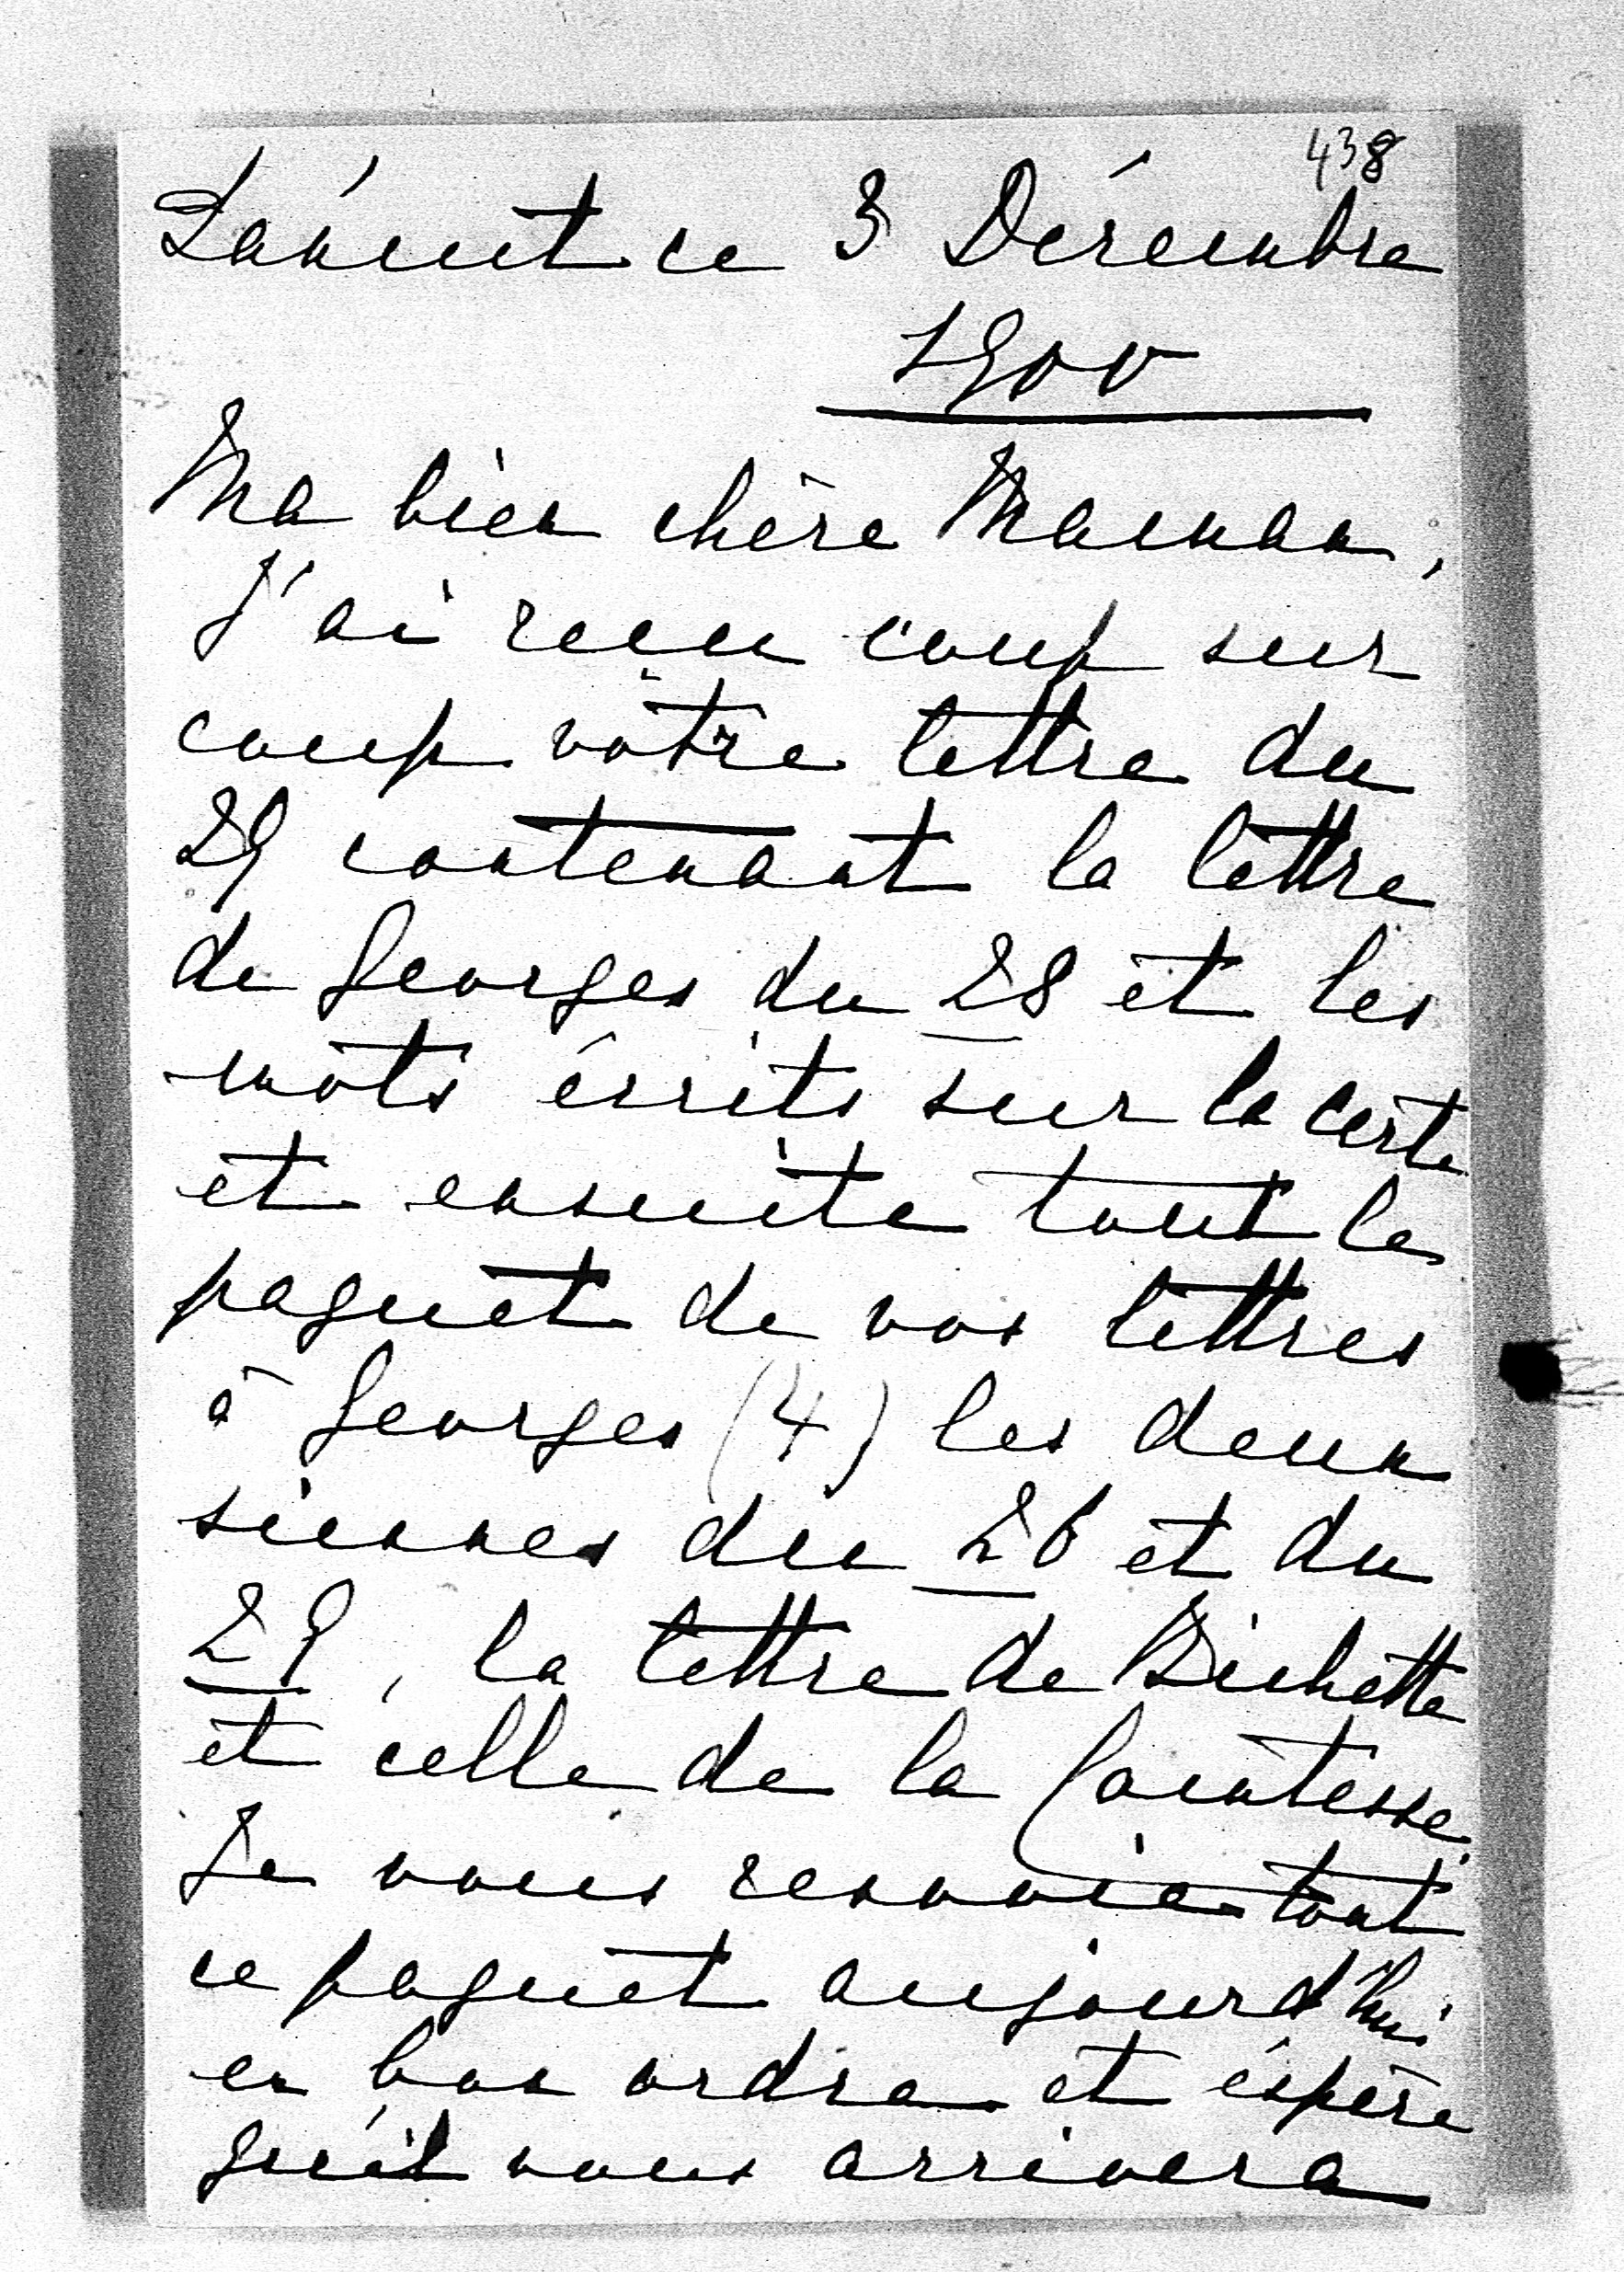 438
Lancut ce 3 Décembre
1900
Ma bien chère Maman,
J'ai reçu coup sur
coup votre lettre du
29 contenant la lettre
de Georges du 28 et les
mots écrits sur la carte
et ensuite tout le
paquet de vos lettres
à Georges (4) les deux
siennes du 26 et du
29, la lettre de Bichette
et celle de la Comtesse.
Je vous renvoie tout
ce paquet aujourd'hui
en bon ordre et éspère
qu'il vous arrivera